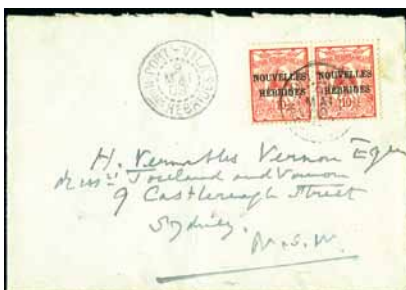 PORT-VILA
MAI
HEBRIDES
NOUVELLES HÉBRIDES
NOUVELLES HÉBRIDES
MAI
H. Venables Vernon Esqre
and Vernon
9 Castlereagh Street
Sydney.
N.S.W.